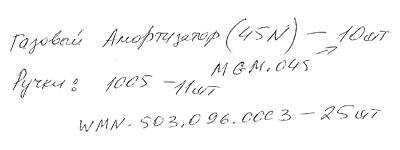 Газовый Амортизатор (45N) – 10шт
MGM.045
Ручки: 1005 – 11шт
WMN.503.096.00C3 – 25шт